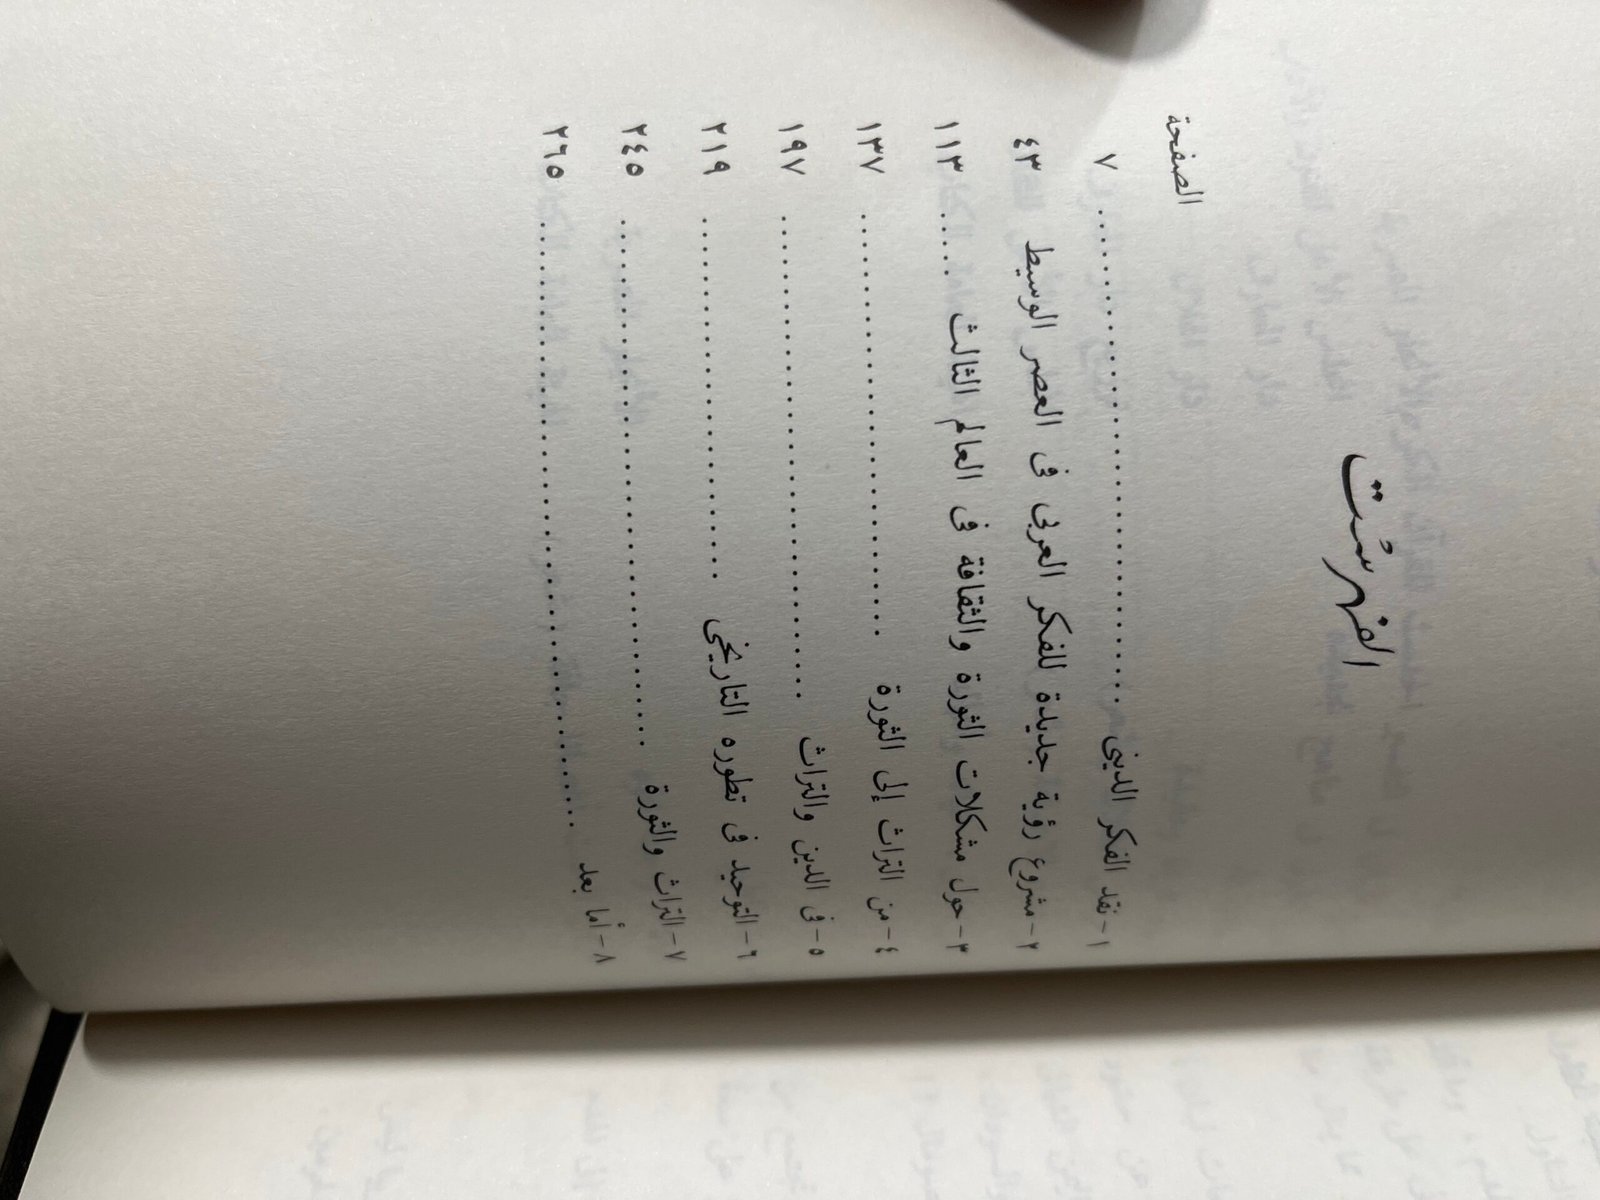 الفهرست
الصفحة
١- نقد الفكر الديني ........................................ ٧
٢- مشروع رؤية جديدة للفكر العربى فى العصر الوسيط ٤٣
٣- حول مشكلات الثورة والثقافة فى العالم الثالث .... ١١٣
٤- من التراث إلى الثورة ........................ ١٣٧
٥- فى الدين والتراث ............................ ١٩٧
٦- التوحيد فى تطوره التاريخى ..................... ٢١٩
٧- التراث والثورة ................................ ٢٤٥
٨- أما بعد ..................................... ٢٦٥